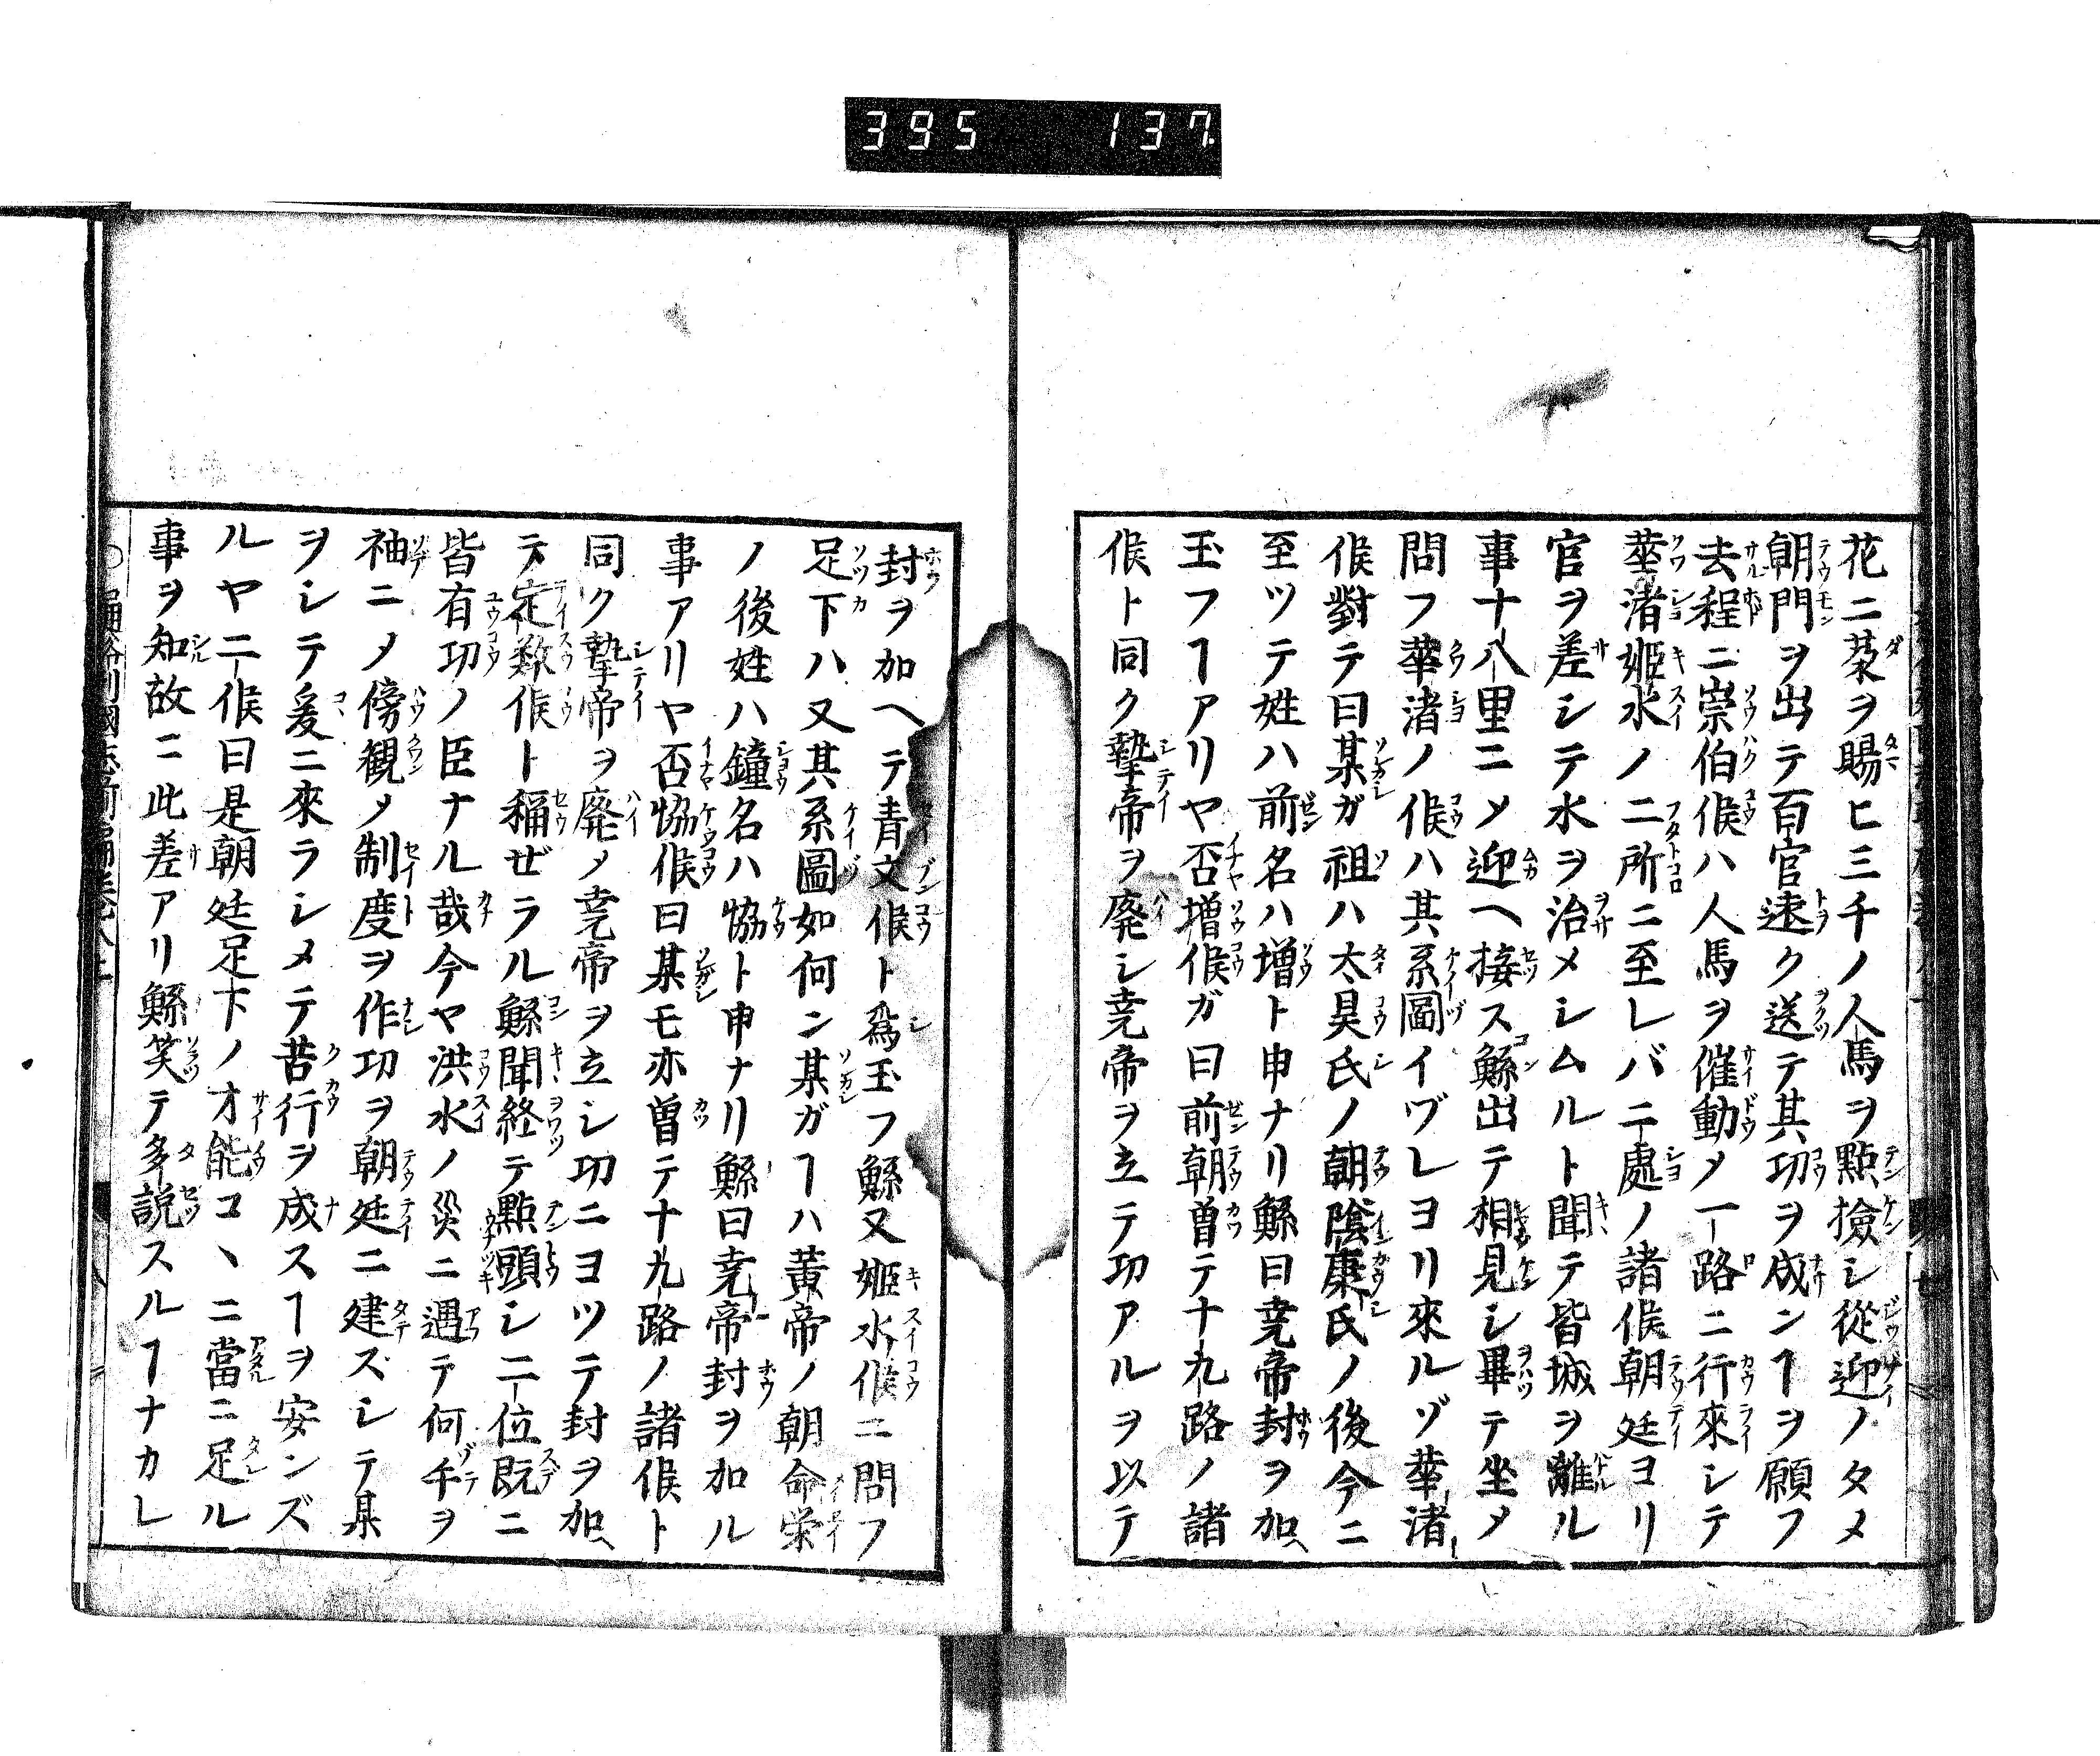 395 137
花ニ茶ヲ賜ヒ三千ノ人馬ヲ點撿シ從迎ノタメ
朝門ヲ出テ百官遠ク送テ其功ヲ成ンヿヲ願フ
去程ニ崇伯侯ハ人馬ヲ催動メ一路ニ行來シテ
華渚姫水ノ二所ニ至レバ二處ノ諸侯朝廷ヨリ
官ヲ差シテ水ヲ治メシムルト聞テ皆城ヲ離ル
事十八里ニメ迎ヘ接ス鯀出テ相見シ畢テ坐メ
問フ華渚ノ侯ハ其系圖イヅレヨリ來ルゾ華渚
侯對テ曰某ガ祖ハ太昊氏ノ朝陰康氏ノ後今ニ
至ツテ姓ハ前名ハ增ト申ナリ鯀曰尭帝封ヲ加
玉フヿアリヤ否增侯ガ曰前朝曽テ十九路ノ諸
侯ト同ク摯帝ヲ廃シ尭帝ヲ立テ功アルヲ以テ
封ヲ加ヘテ青文侯ト爲玉フ鯀又姫水侯ニ問フ
足下ハ又其系圖如何ン某ガヿハ黄帝ノ朝命栄
ノ後姓ハ鐘名ハ恊ト申ナリ鯀曰尭帝封ヲ加ル
事アリヤ否恊侯曰某モ亦曽テ十九路ノ諸侯ト
同ク摯帝ヲ廃メ尭帝ヲ立シ功ニヨツテ封ヲ加
テ定数侯ト稱ゼラル鯀聞終テ點頭シ二位既ニ
皆有功ノ臣ナル哉今ヤ洪水ノ災ニ遇テ何手ヲ
袖ニメ傍観メ制度ヲ作功ヲ朝廷ニ建ズシテ某
ヲシテ爰ニ來ラシメテ苦行ヲ成スヿヲ安ンズ
ルヤ二侯曰是朝廷足下ノオ能コヽニ當ニ足ル
事ヲ知故ニ此差アリ鯀笑テ多説スルヿナカレ